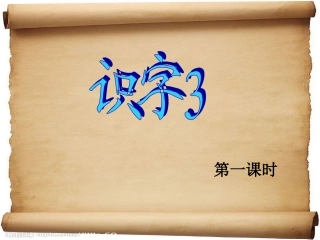 识字3
第一课时